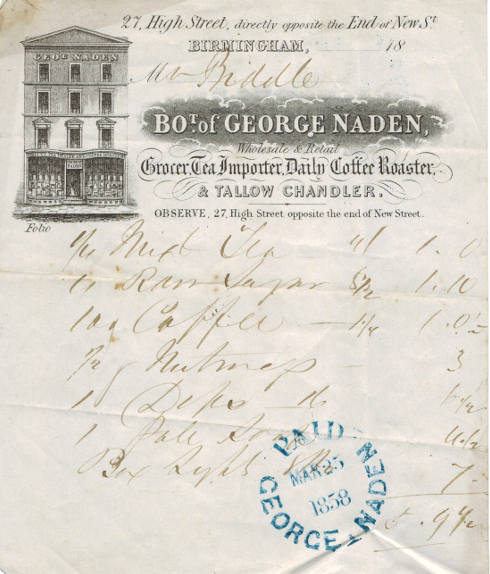 27, High Street, directly opposite the End of New St.
BIRMINGHAM, 18
GEOE. NADEN
Mr Biddle
BOT. of GEORGE NADEN,
Wholesale & Retail
Grocer, Tea Importer, Daily Coffee Roaster,
& TALLOW CHANDLER.
OBSERVE, 27, High Street, opposite the end of New Street.
Folio
Mixd Tea 1. 0
Raw Sugar 1. 10
10 Coffee 1. 0½
Nutmegs 3
1 Dips
1 Pale Soap
Box 7
9½
PAID
MAR 25
1858
GEORGE NADEN